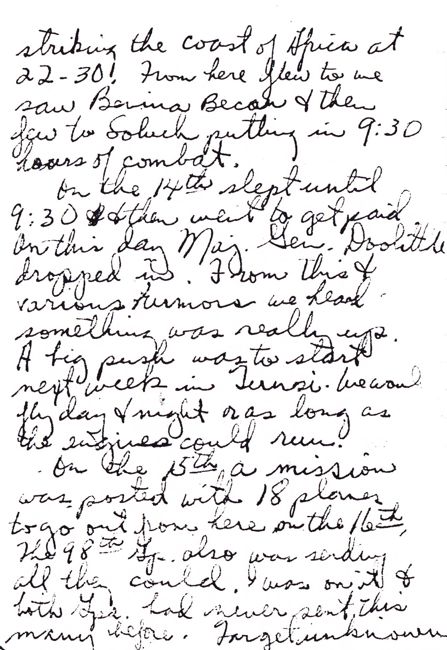 striking the coast of Africa at
22-30! From here flew to we
saw Benina Becon & then
flew to Soluch putting in 9:30
hours of combat.
On the 14th slept until
9:30 & then went to get paid
On this day Maj. Gen. Doolittle
dropped in. From this &
various rumors we heard
something was really up.
A big push was to start
next week in Tunisi. We would
fly day & night or as long as
the engines could run!
On the 15th a mission
was posted with 18 planes
to go out from here on the 16th.
The 98th Gp. also was sending
all they could. I was on it &
both Gps. had never sent this
many before. Target unknown